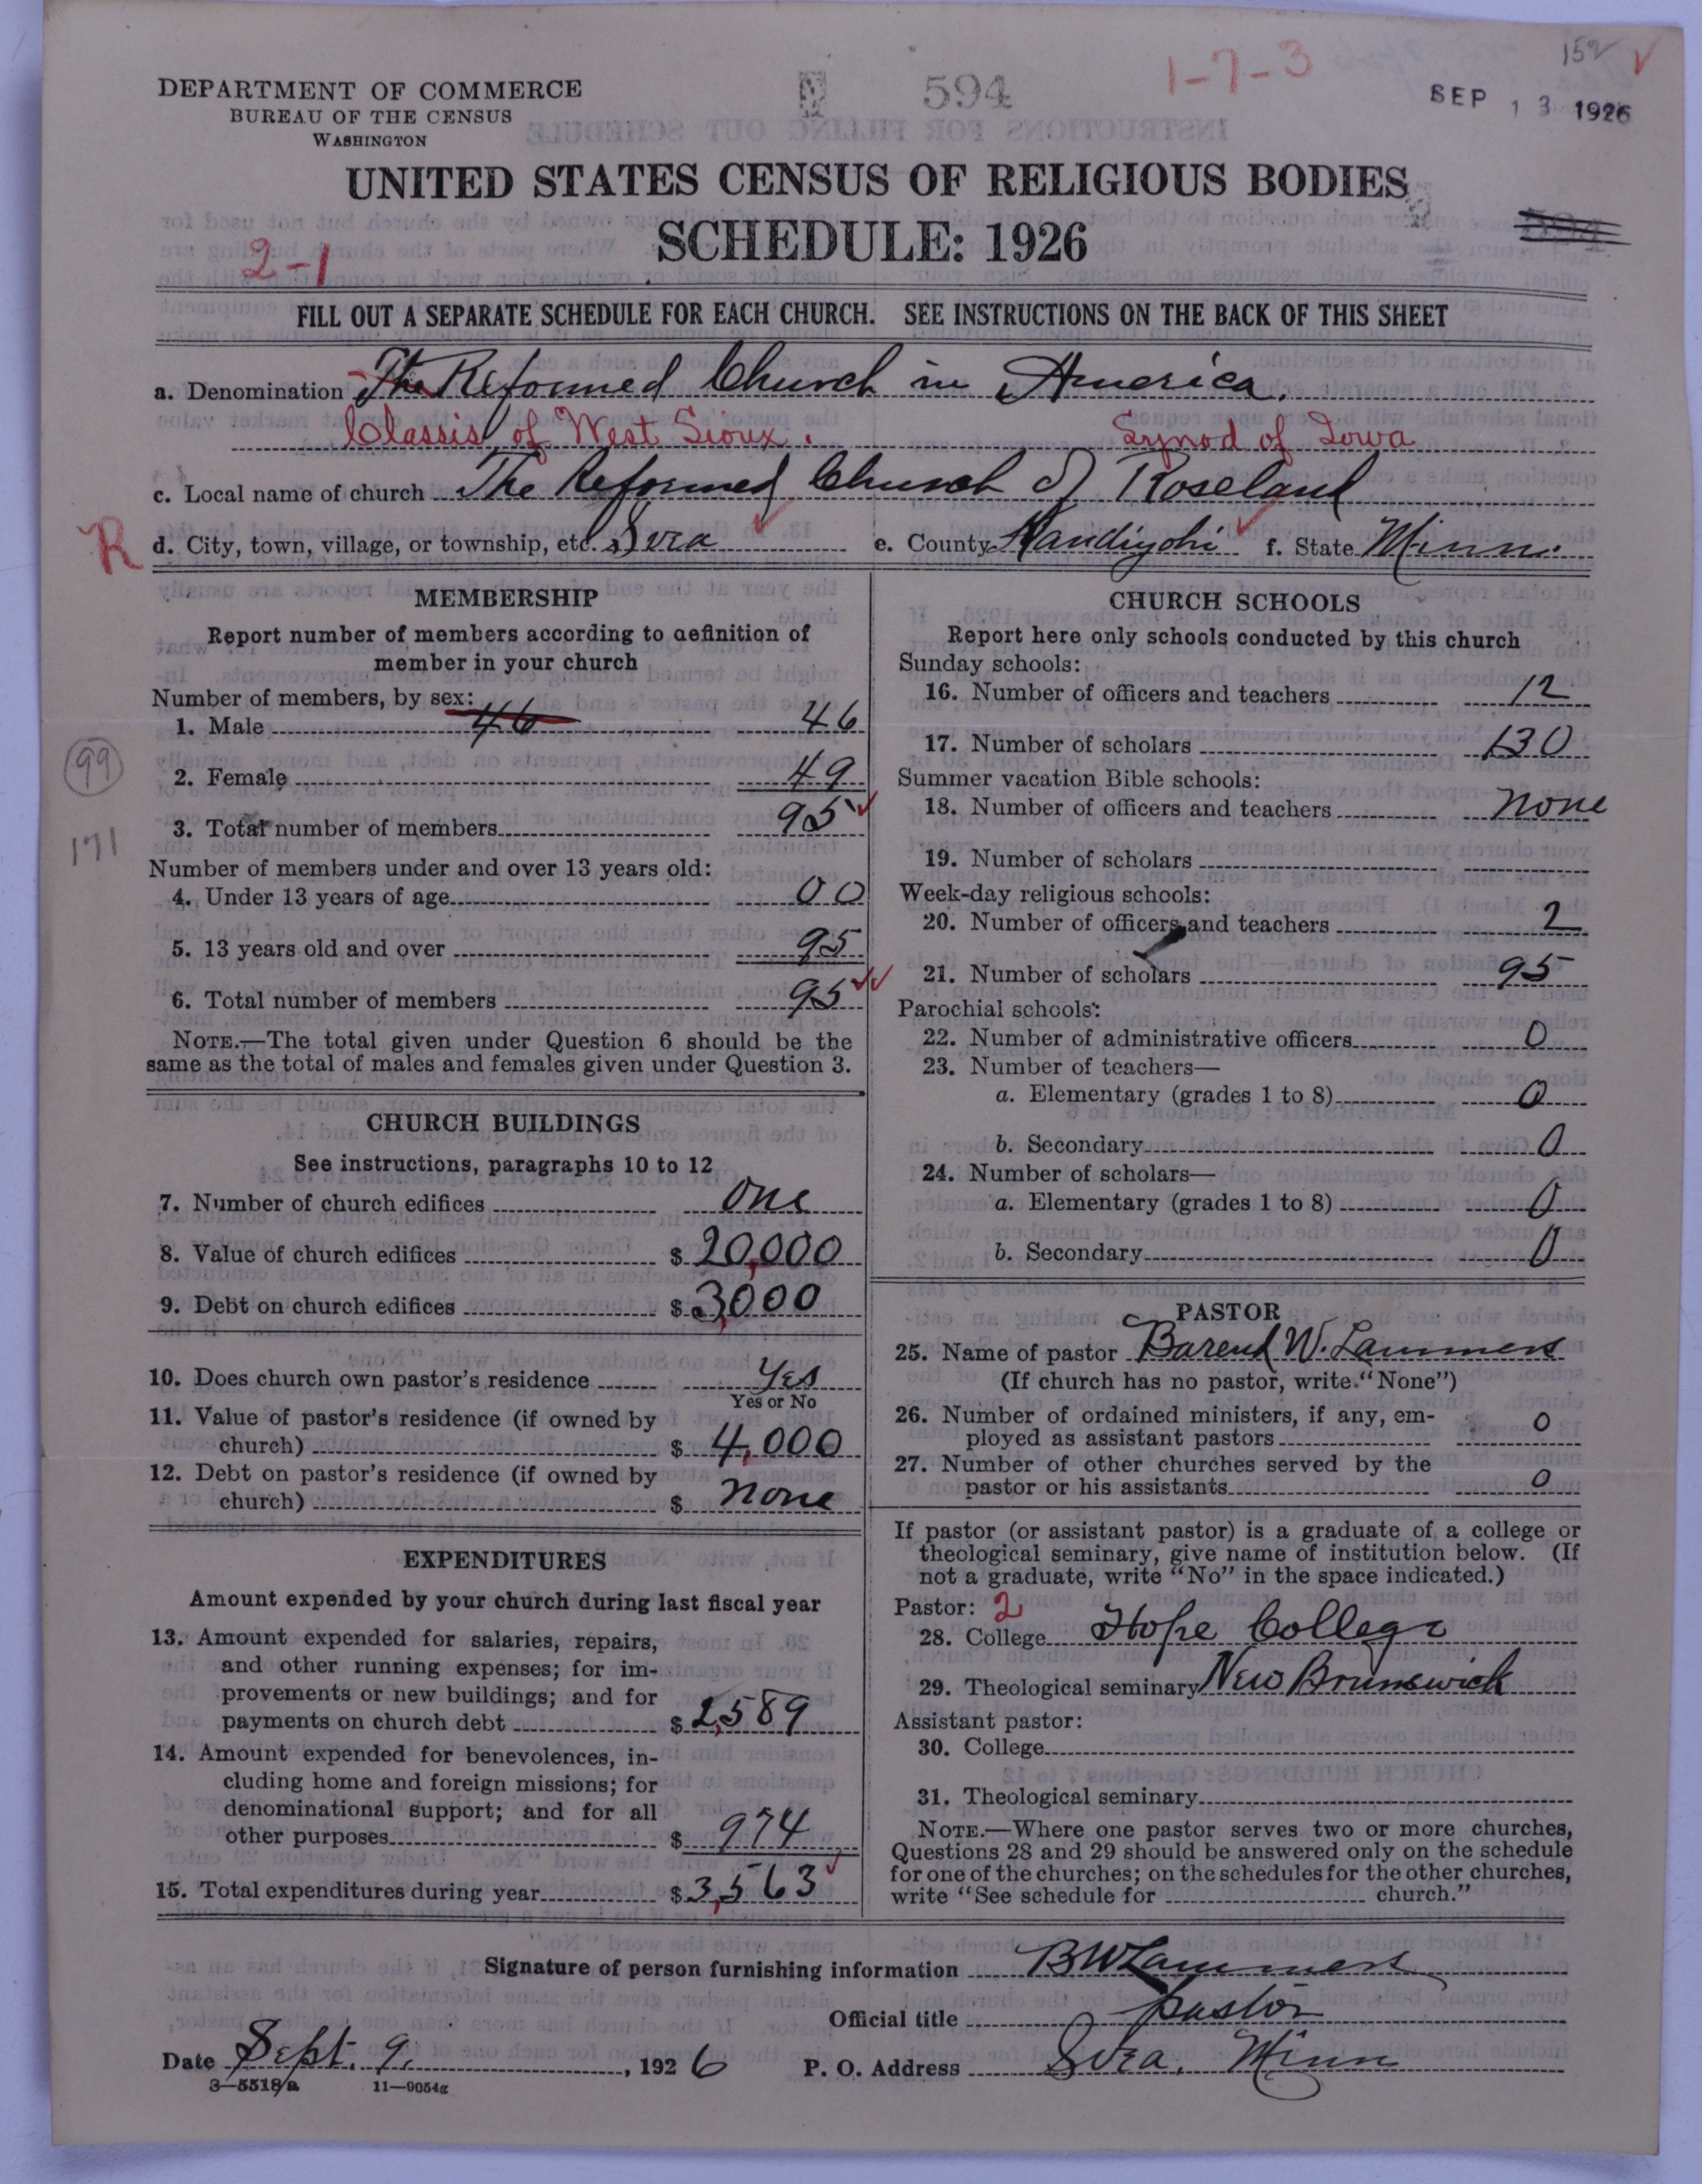 152 ✓
DEPARTMENT OF COMMERCE
BUREAU OF THE CENSUS
WASHINGTON
594
1-7-3
SEP 13 1926
UNITED STATES CENSUS OF RELIGIOUS BODIES
SCHEDULE: 1926
594
2-1
FILL OUT A SEPARATE SCHEDULE FOR EACH CHURCH. SEE INSTRUCTIONS ON THE BACK OF THIS SHEET
a. Denomination The Reformed Church in America.
Classis of West Sioux. Synod of Iowa
c. Local name of church The Reformed Church of Roseland
R
d. City, town, village, or township, etc. Svea e. County Kandiyohi f. State Minn.
MEMBERSHIP
Report number of members according to definition of
member in your church
Number of members, by sex:
1. Male 46 46
2. Female 49
3. Total number of members 95
Number of members under and over 13 years old:
4. Under 13 years of age 00
5. 13 years old and over 95
6. Total number of members 95
NOTE.—The total given under Question 6 should be the
same as the total of males and females given under Question 3.
99
171
CHURCH BUILDINGS
See instructions, paragraphs 10 to 12
7. Number of church edifices One
8. Value of church edifices $ 20,000
9. Debt on church edifices $ 3,000
10. Does church own pastor's residence Yes
Yes or No
11. Value of pastor's residence (if owned by
church) $ 4,000
12. Debt on pastor's residence (if owned by
church) $ none
EXPENDITURES
Amount expended by your church during last fiscal year
13. Amount expended for salaries, repairs,
and other running expenses; for im-
provements or new buildings; and for
payments on church debt $ 2,589
14. Amount expended for benevolences, in-
cluding home and foreign missions; for
denominational support; and for all
other purposes $ 974
15. Total expenditures during year $ 3,563
CHURCH SCHOOLS
Report here only schools conducted by this church
Sunday schools:
16. Number of officers and teachers 12
17. Number of scholars 130
Summer vacation Bible schools:
18. Number of officers and teachers none
19. Number of scholars
Week-day religious schools:
20. Number of officers and teachers 2
21. Number of scholars 95
Parochial schools:
22. Number of administrative officers 0
23. Number of teachers—
a. Elementary (grades 1 to 8) 0
b. Secondary 0
24. Number of scholars—
a. Elementary (grades 1 to 8) 0
b. Secondary 0
PASTOR
25. Name of pastor Barend W. Lammers
(If church has no pastor, write "None")
26. Number of ordained ministers, if any, em-
ployed as assistant pastors 0
27. Number of other churches served by the
pastor or his assistants 0
If pastor (or assistant pastor) is a graduate of a college or
theological seminary, give name of institution below. (If
not a graduate, write "No" in the space indicated.)
Pastor: 2
28. College Hope College
29. Theological seminary New Brunswick
Assistant pastor:
30. College
31. Theological seminary
NOTE.—Where one pastor serves two or more churches,
Questions 28 and 29 should be answered only on the schedule
for one of the churches; on the schedules for the other churches,
write "See schedule for church."
Signature of person furnishing information BW Lammers
Official title pastor
Date Sept. 9, 1926 P. O. Address Svea, Minn
3—5518a 11—9054a